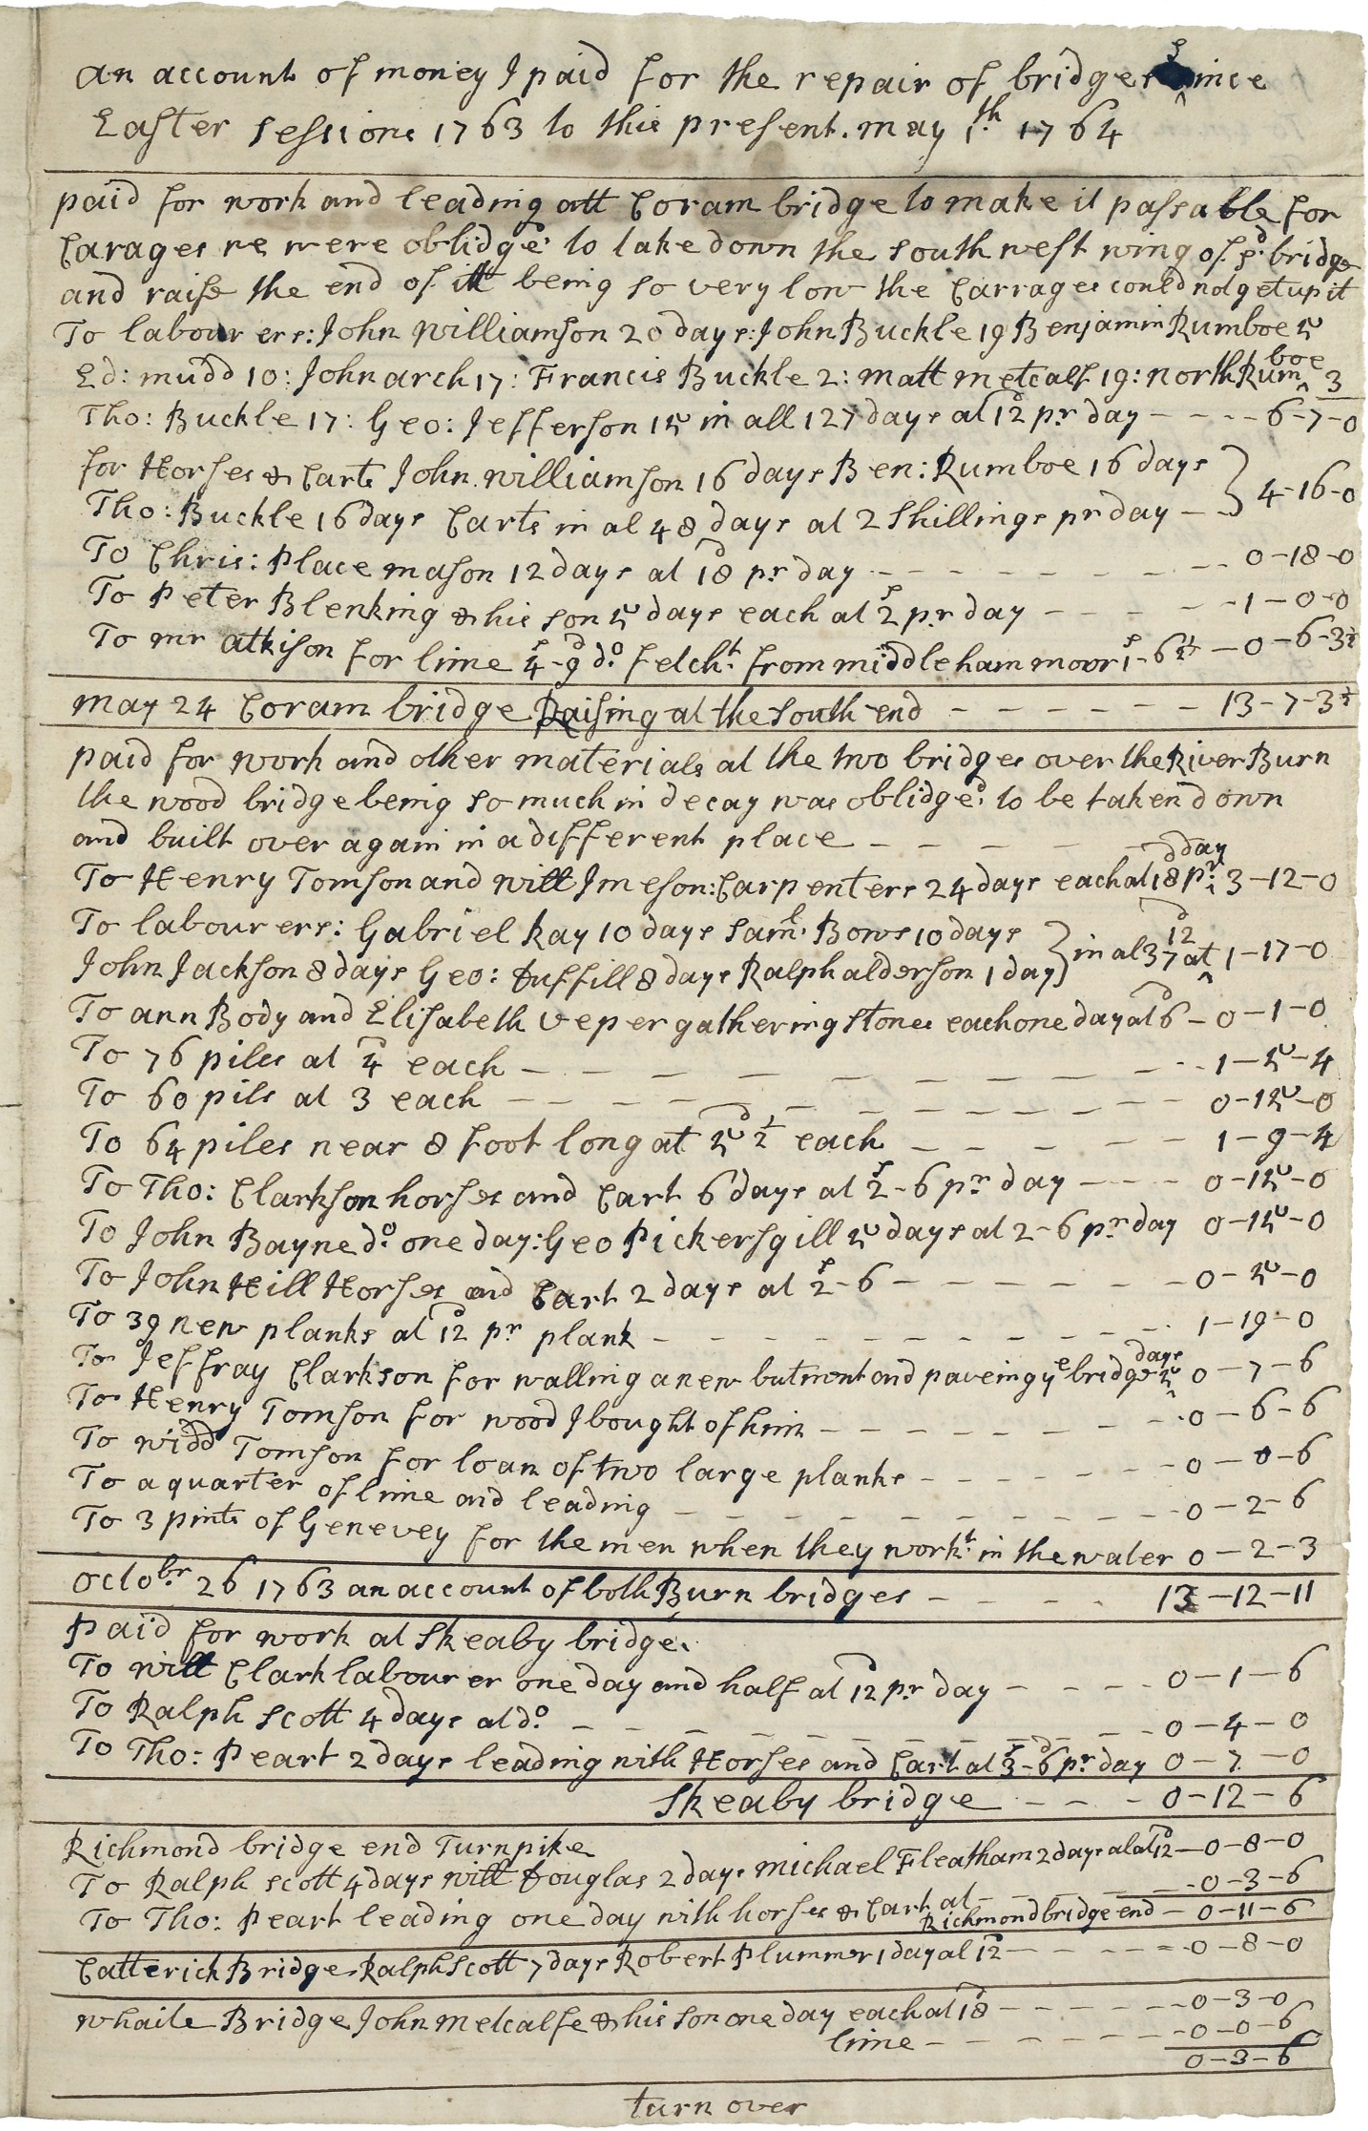 an account of money I paid for the repair of bridges since
Easter sessions 1763 to this present. may 1th 1764
paid for work and leading att Coram bridge to make it passable for
Carages we were oblidged to take down the south west wing of sd bridge
and raise the end of itt being so very low the Carrages could not get up it
To labourers: John Williamson 20 days: John Buckle 19 Benjamin Rumboe 5
Ed: mudd 10: John arch 17: Francis Buckle 2: Matt metcalf 19: north Rumboe 3
Tho: Buckle 17: Geo: Jefferson 15 in all 127 days at 12d pr day - - - - 6-7-0
for Horses & Carts John Williamson 16 days Ben: Rumboe 16 days
Tho: Buckle 16 days Carts in al 48 days at 2 Shillings pr day - } 4-16-0
To Chris: Place mason 12 days at 18d pr day - - - - - - - - 0-18-0
To Peter Blenking & his son 5 days each at 2s pr day - - - - - 1-0-0
To mr atkison for lime 4s-9d do fetcht from middleham moor 1s-6½ - 0-6-3½
may 24 Coram bridge Raising at the South end - - - - - - 13-7-3½
paid for work and other materials at the two bridges over the River Burn
the wood bridge being so much in decay was oblidged to be taken down
and built over again in a different place - - - - -
To Henry Tomson and will Jmeson: Carpenters 24 days each at 18d pr day 3-12-0
To labourers: Gabriel Ray 10 days Saml Bows 10 days
John Jackson 8 days Geo: Duffill 8 days Ralph alderson 1 day } in al 37 at 12d 1-17-0
To ann Body and Elisabeth veper gathering stones each one day at 6d - 0-1-0
To 76 piles at 4d each - - - - - - - - - - 1-5-4
To 60 pils at 3 each - - - - - - - - - - 0-15-0
To 64 piles near 8 foot long at 5d½ each - - - - - - 1-9-4
To Tho: Clarkson horses and Cart 6 days at 2s-6 pr day - - - - 0-15-0
To John Bayne do one day: Geo Pickersgill 5 days at 2-6 pr day 0-15-0
To John Hill Horses and Cart 2 days at 2s-6 - - - - - - 0-5-0
To 39 new planks at 12d pr plank - - - - - - - - 1-19-0
To Jeffray Clarkson for walling a new butment and paveing ye bridge 5 days 0-7-6
To Henry Tomson for wood I bought of him - - - - - - - 0-6-6
To widd Tomson for loan of two large planks - - - - - - 0-0-6
To a quarter of lime and leading - - - - - - - - - 0-2-6
To 3 pints of Genevey for the men when they workt in the water 0-2-3
Octobr 26 1763 an account of both Burn bridges - - - - - 13-12-11
Paid for work at Skeaby bridge.
To will Clark labourer one day and half at 12d pr day - - - - 0-1-6
To Ralph Scott 4 days at do - - - - - - - - - 0-4-0
To Tho: Peart 2 days leading with Horses and Cart at 3s-6d pr day 0-7-0
Skeaby bridge - - - - 0-12-6
Richmond bridge end Turnpike
To Ralph Scott 4 days will Douglas 2 days Michael Fleatham 2 days al at 12d - 0-8-0
To Tho: Peart leading one day with horses & Cart at - - - - - 0-3-6
Richmond bridge end - 0-11-6
Catterick Bridge Ralph Scott 7 days Robert Plummer 1 day at 12d - - - - - 0-8-0
whaile Bridge John Metcalfe & his son one day each at 18d - - - - - - 0-3-0
lime - - - - - - - 0-0-6
0-3-6
turn over